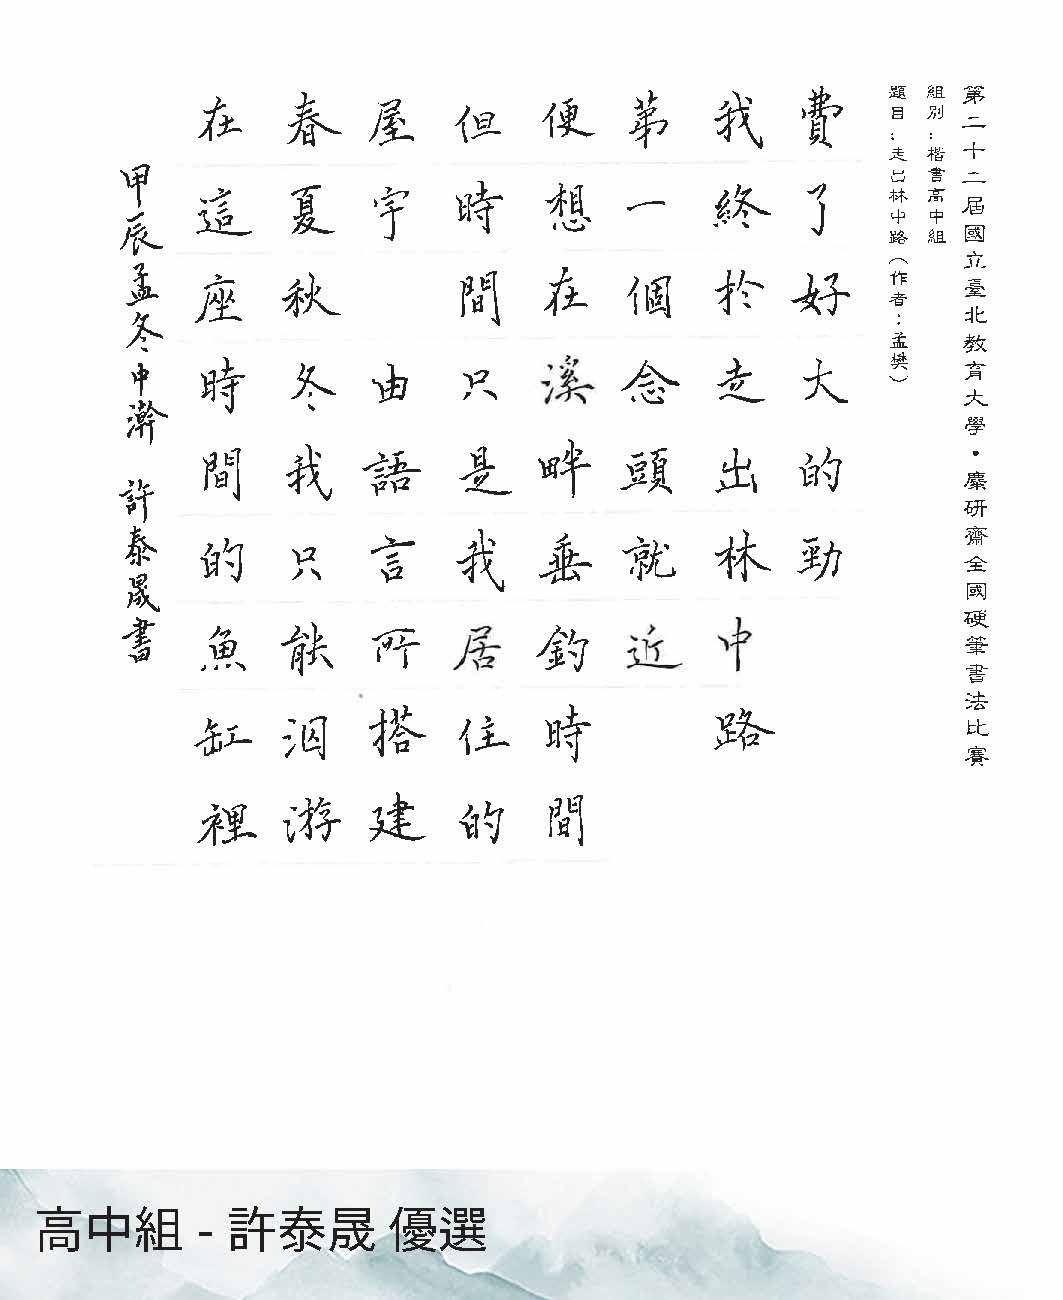 第二十二屆國立臺北教育大學・麋研齋全國硬筆書法比賽
組別：楷書高中組
題目：走出林中路（作者：孟樊）
費了好大的勁
我終於走出林中路
第一個念頭就近
便想在溪畔垂釣時間
但時間只是我居住的
屋宇 由語言所搭建
春夏秋冬我只能泅游
在這座時間的魚缸裡
甲辰孟冬中澣 許泰晟書
高中組 - 許泰晟 優選